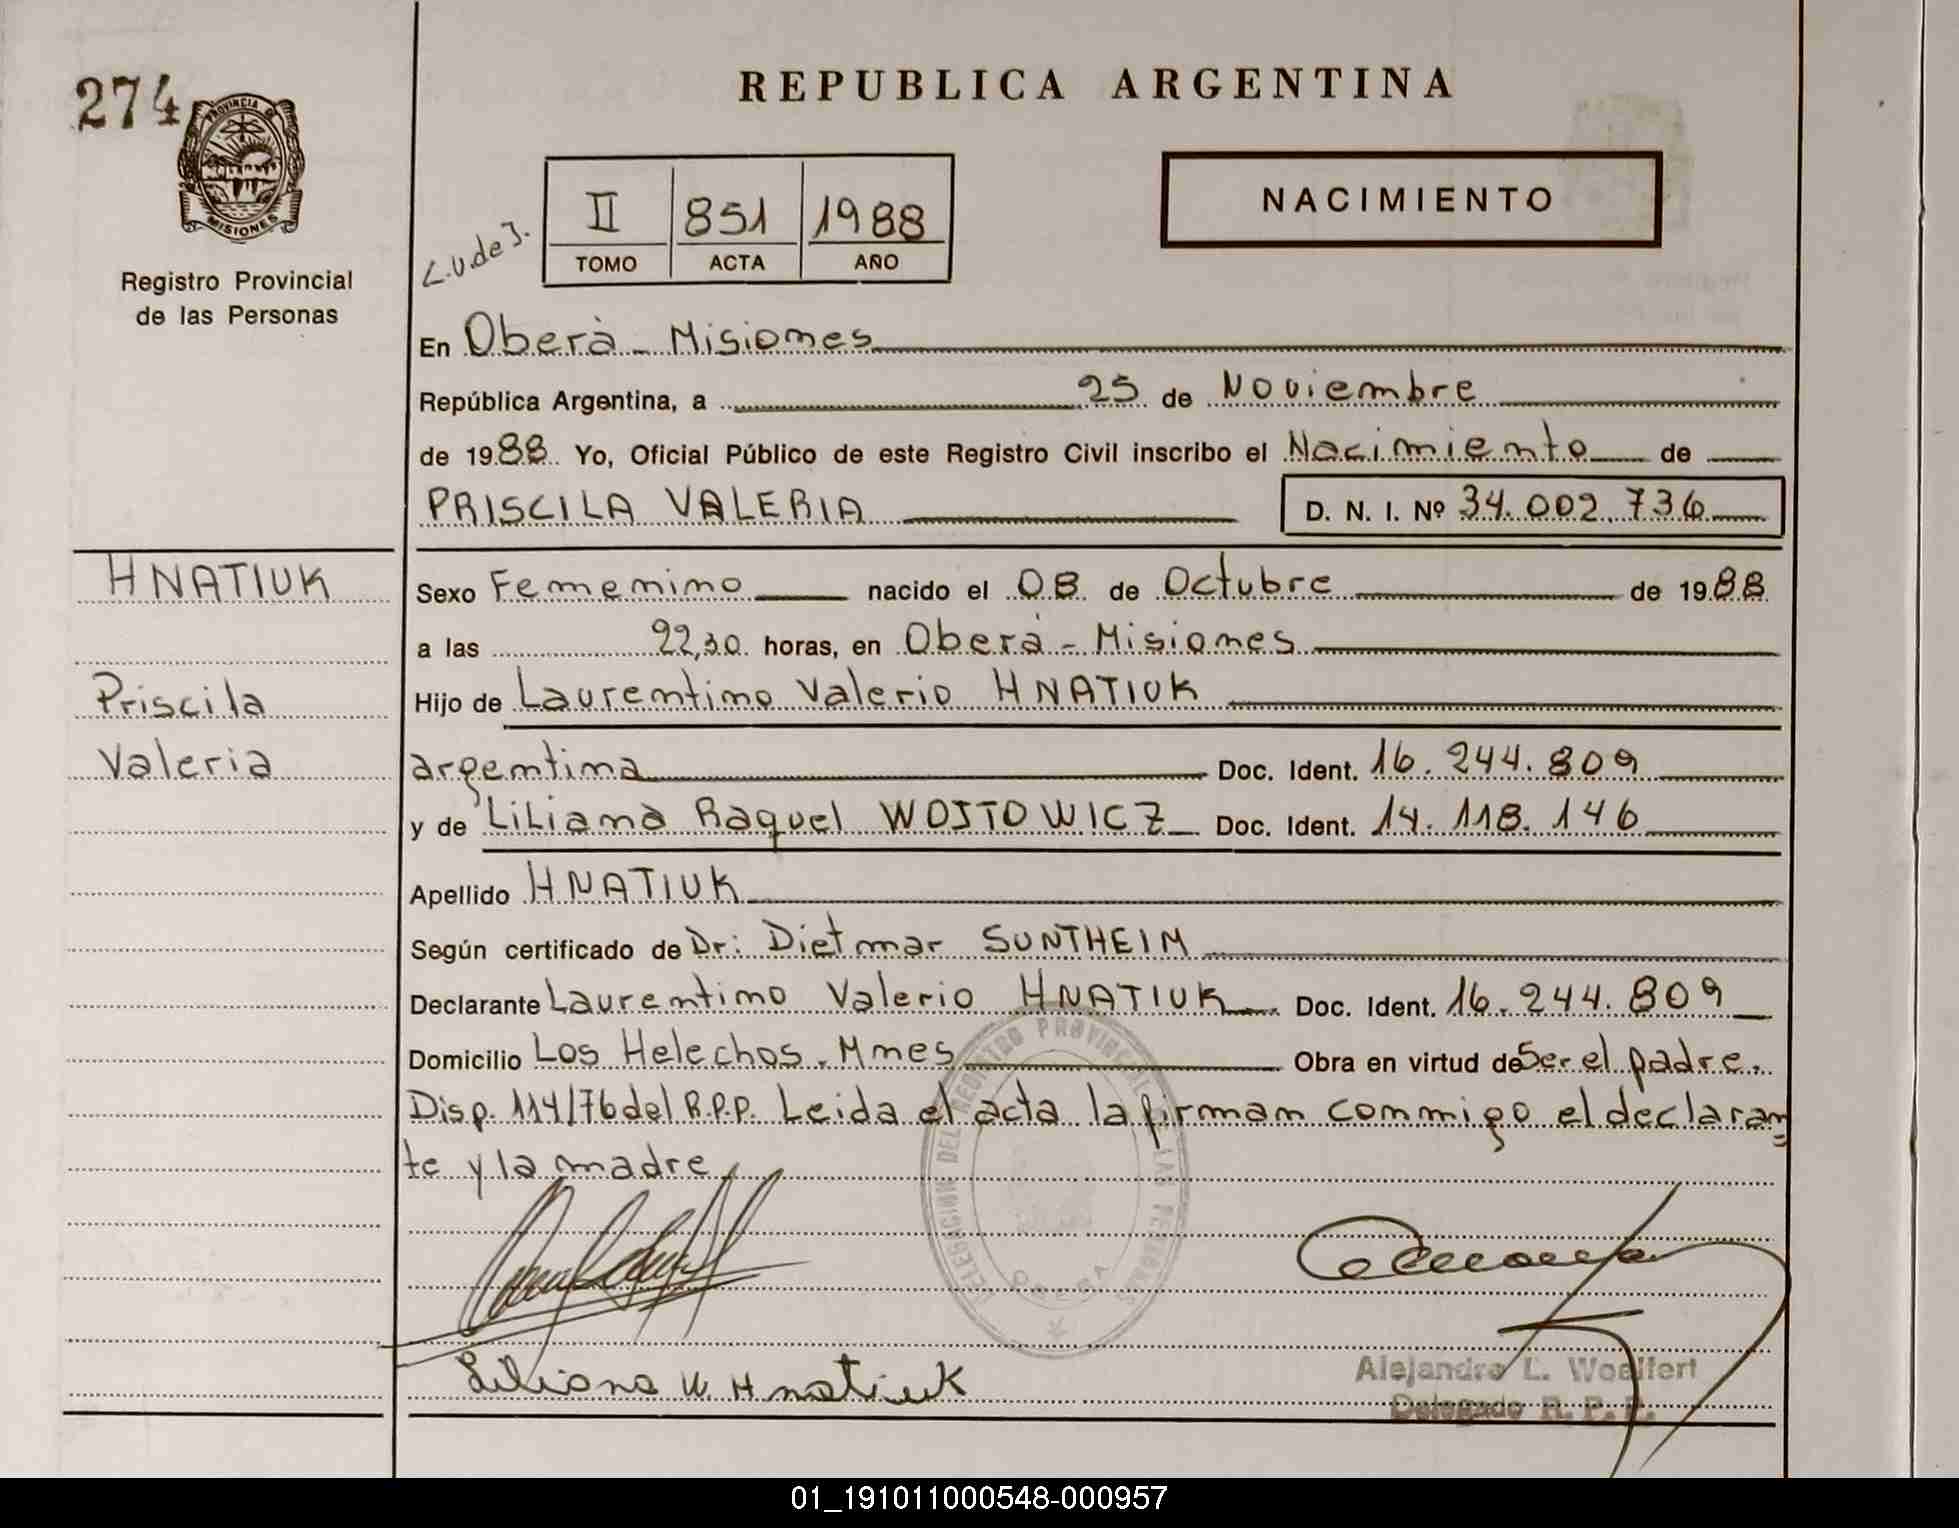 274
PROVINCIA DE
MISIONES
Registro Provincial
de las Personas
REPUBLICA ARGENTINA
NACIMIENTO
L.U.de J.
II 851 1988
TOMO ACTA AÑO
En Oberà - Misiones
República Argentina, a 25 de Noviembre
de 1988 Yo, Oficial Público de este Registro Civil inscribo el Nacimiento de
PRISCILA VALERIA D. N. I. Nº 34.002.736
HNATIUK
Priscila
Valeria
Sexo Femenino nacido el 08 de Octubre de 1988
a las 22,30 horas, en Oberà - Misiones
Hijo de Laurentino Valerio HNATIUK
argentina Doc. Ident. 16.244.809
y de Liliana Raquel WOJTOWICZ Doc. Ident. 14.118.146
Apellido HNATIUK
Según certificado de Dr: Dietmar SUNTHEIM
Declarante Laurentino Valerio HNATIUK Doc. Ident. 16.244.809
Domicilio Los Helechos. Mnes Obra en virtud de Ser el padre.
Disp. 114/76 del R.P.P. Leida el acta la firman conmigo el declaran
te y la madre
DELEGACION DEL REGISTRO PROVINCIAL DE LAS PERSONAS
OBERA
Liliana W Hnatiuk
Alejandro L. Woelfert
Delegado R. P. P.
01_191011000548-000957